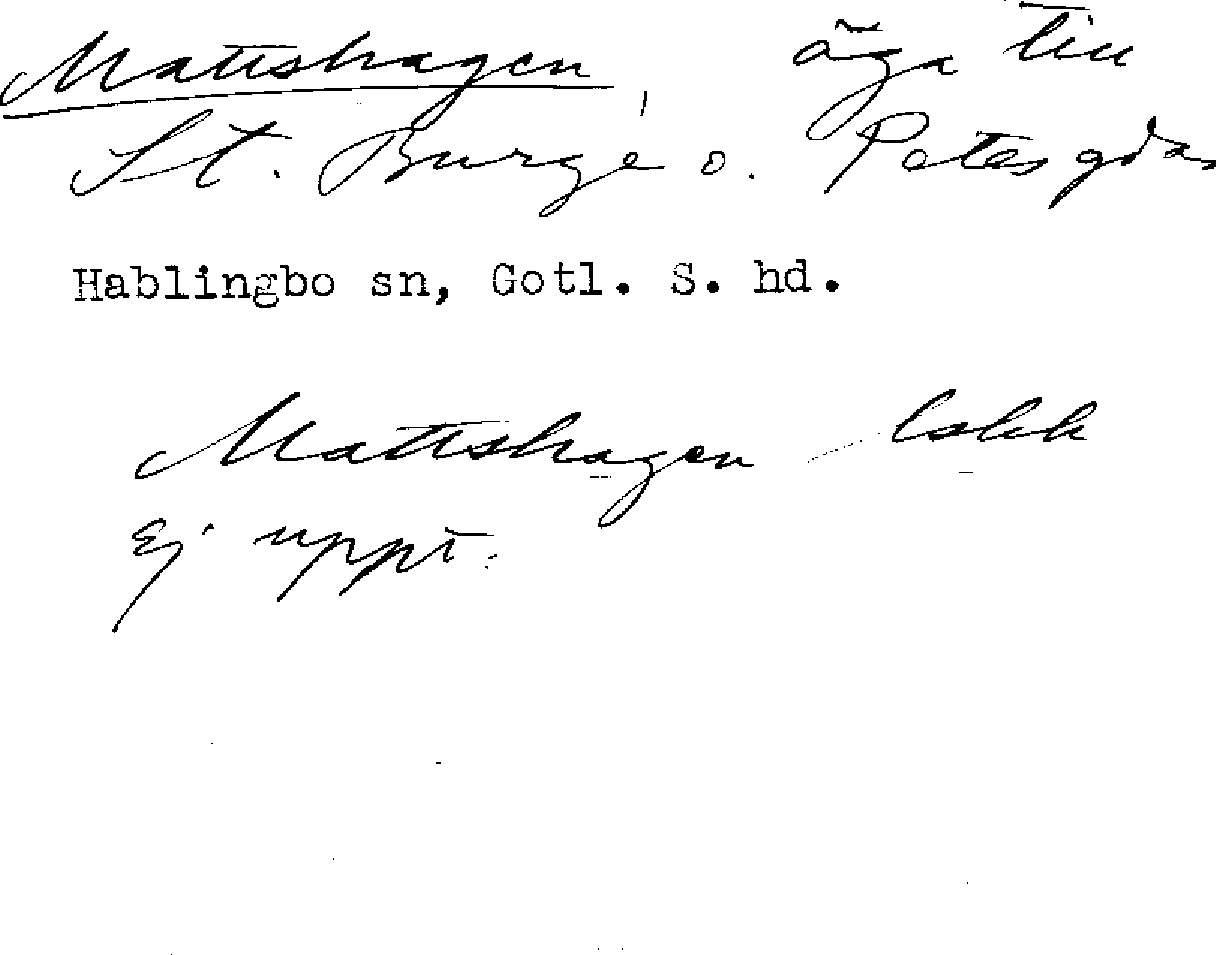 Mattshagen, äga till
St. Burge o. Petes gdar
Hablingbo sn, Gotl. S. hd.
Mattshagen lokk
Ej uppt.